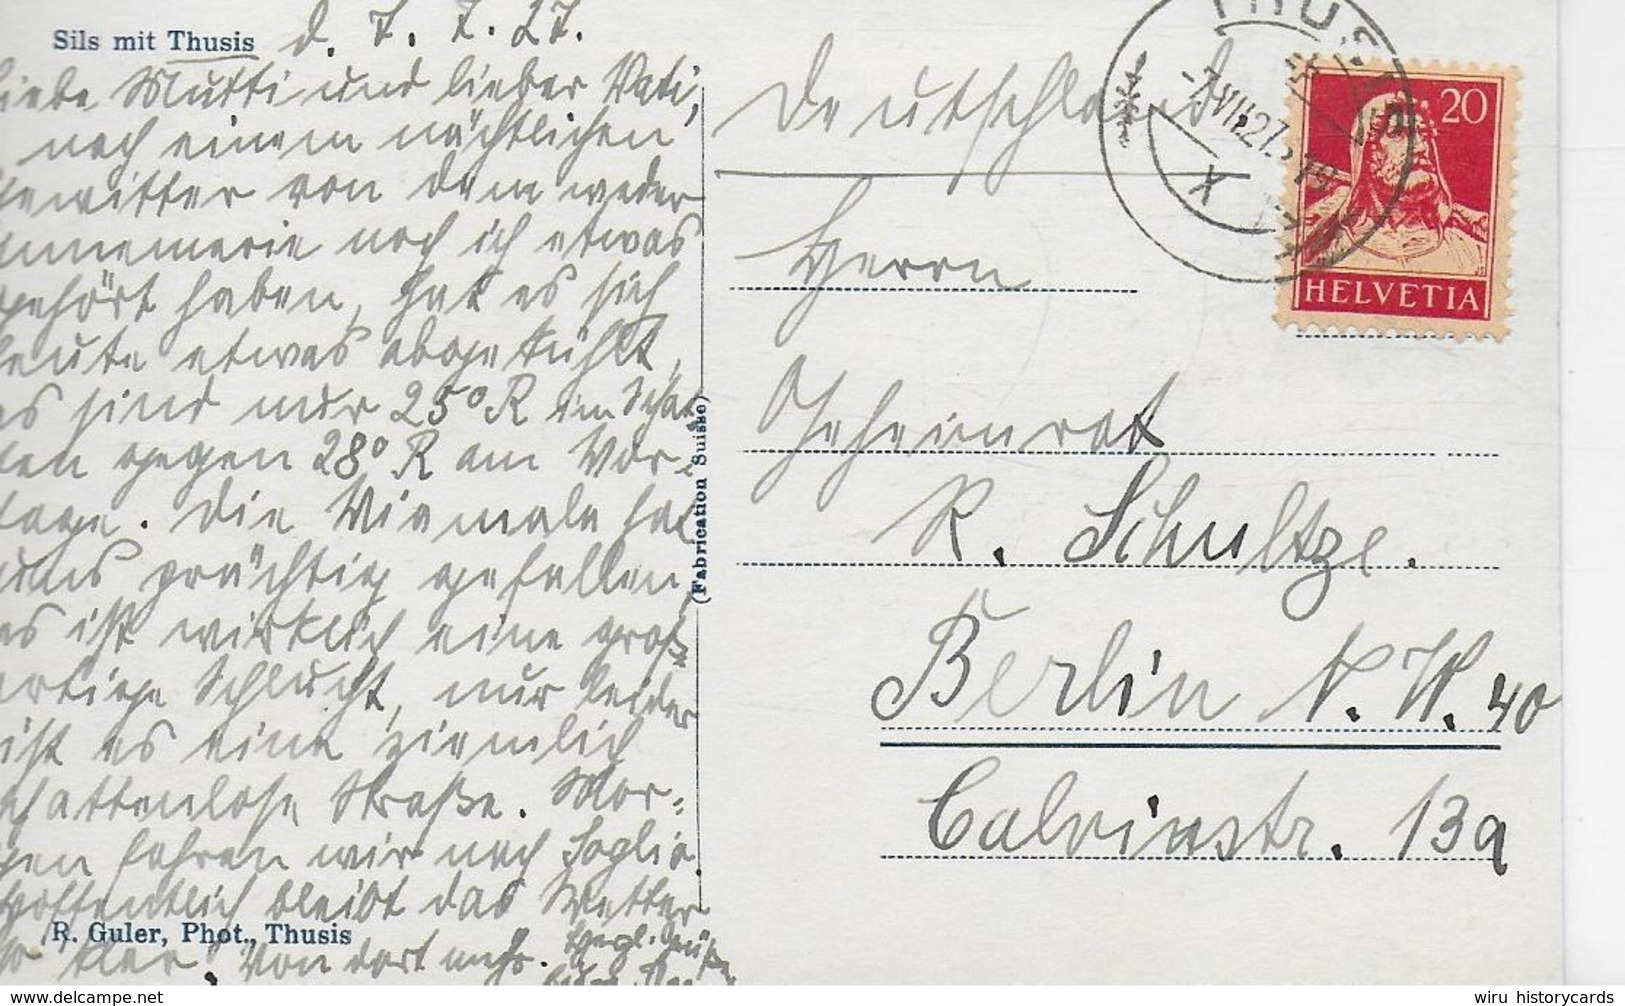 Sils mit Thusis d. 7. 7. 27.
Liebe Mutti und lieber Vati,
nach einem nächtlichen
Gewitter von dem weder
Annemarie noch ich etwas
gehört haben, hat es sich
heute etwas abgekühlt,
es sind nur 25° R im Schat-
ten gegen 28° R am Vor-
tage. Die Viamala hat
uns prächtig gefallen,
es ist wirklich eine groß-
artige Schlucht, nur leider
ist es eine ziemlich
schattenlose Straße. Mor-
gen fahren wir nach Soglio.
Hoffentlich bleibt das Wetter
so klar. Von dort mehr. Herzl. Grüße
R. Guler, Phot., Thusis
(Fabrication Suisse)
Deutschland
Herrn
Geheimrat
R. Schultze.
Berlin N.W. 40
Calvinstr. 13a
THUSIS
-7.VII.27. 19
X
20
HELVETIA
wiru historycards
www.delcampe.net